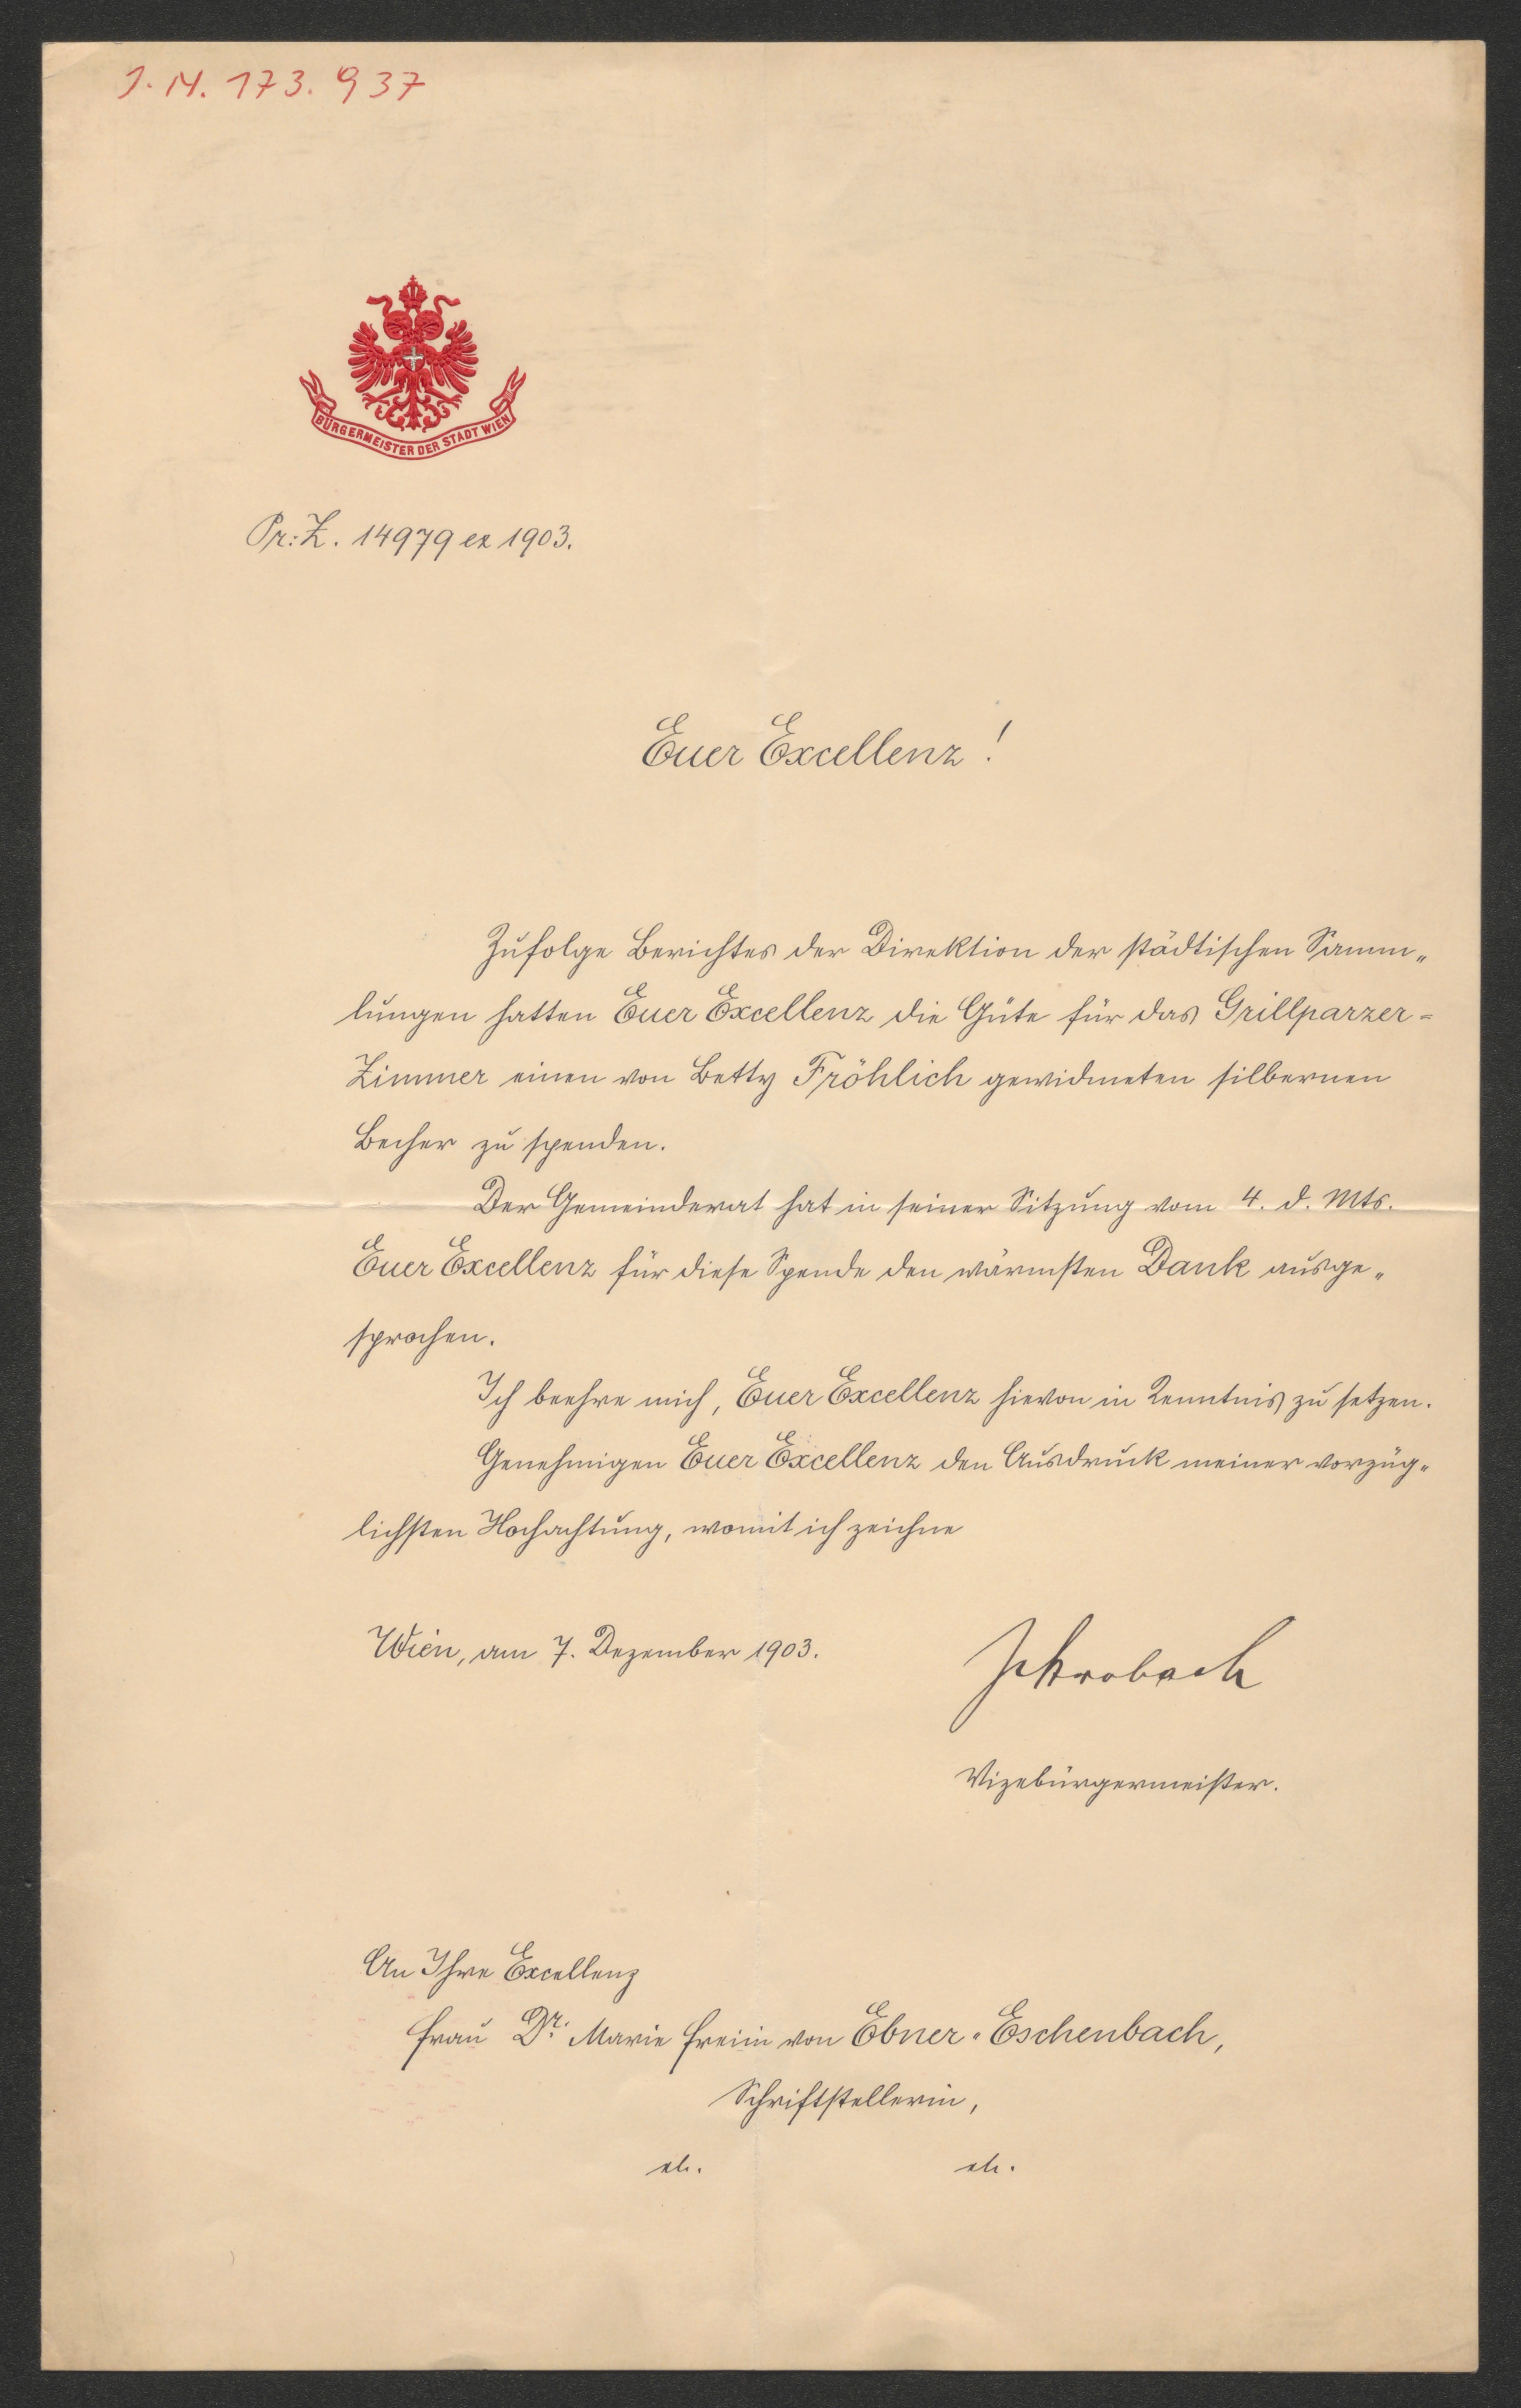 J. N. 173.937
BÜRGERMEISTER DER STADT WIEN
Pr: Z. 14979 ex 1903.
Euer Excellenz!
Zufolge Berichtes der Direktion der städtischen Samm„
lungen hatten Euer Excellenz die Güte für das Grillparzer=
Zimmer einen von Betty Fröhlich gewidmeten silbernen
Becher zu spenden.
Der Gemeinderat hat in seiner Sitzung vom 4. d. Mts.
Euer Excellenz für diese Spende den wärmsten Dank ausge„
sprochen.
Ich beehre mich, Euer Excellenz hievon in Kenntnis zu setzen.
Genehmigen Euer Excellenz den Ausdruck meiner vorzüg„
lichsten Hochachtung, womit ich zeichne
Wien, am 7. Dezember 1903.
Strobach
Vizebürgermeister.
An Ihre Excellenz
Frau Dr. Marie Freiin von Ebner-Eschenbach,
Schriftstellerin,
etc. etc.